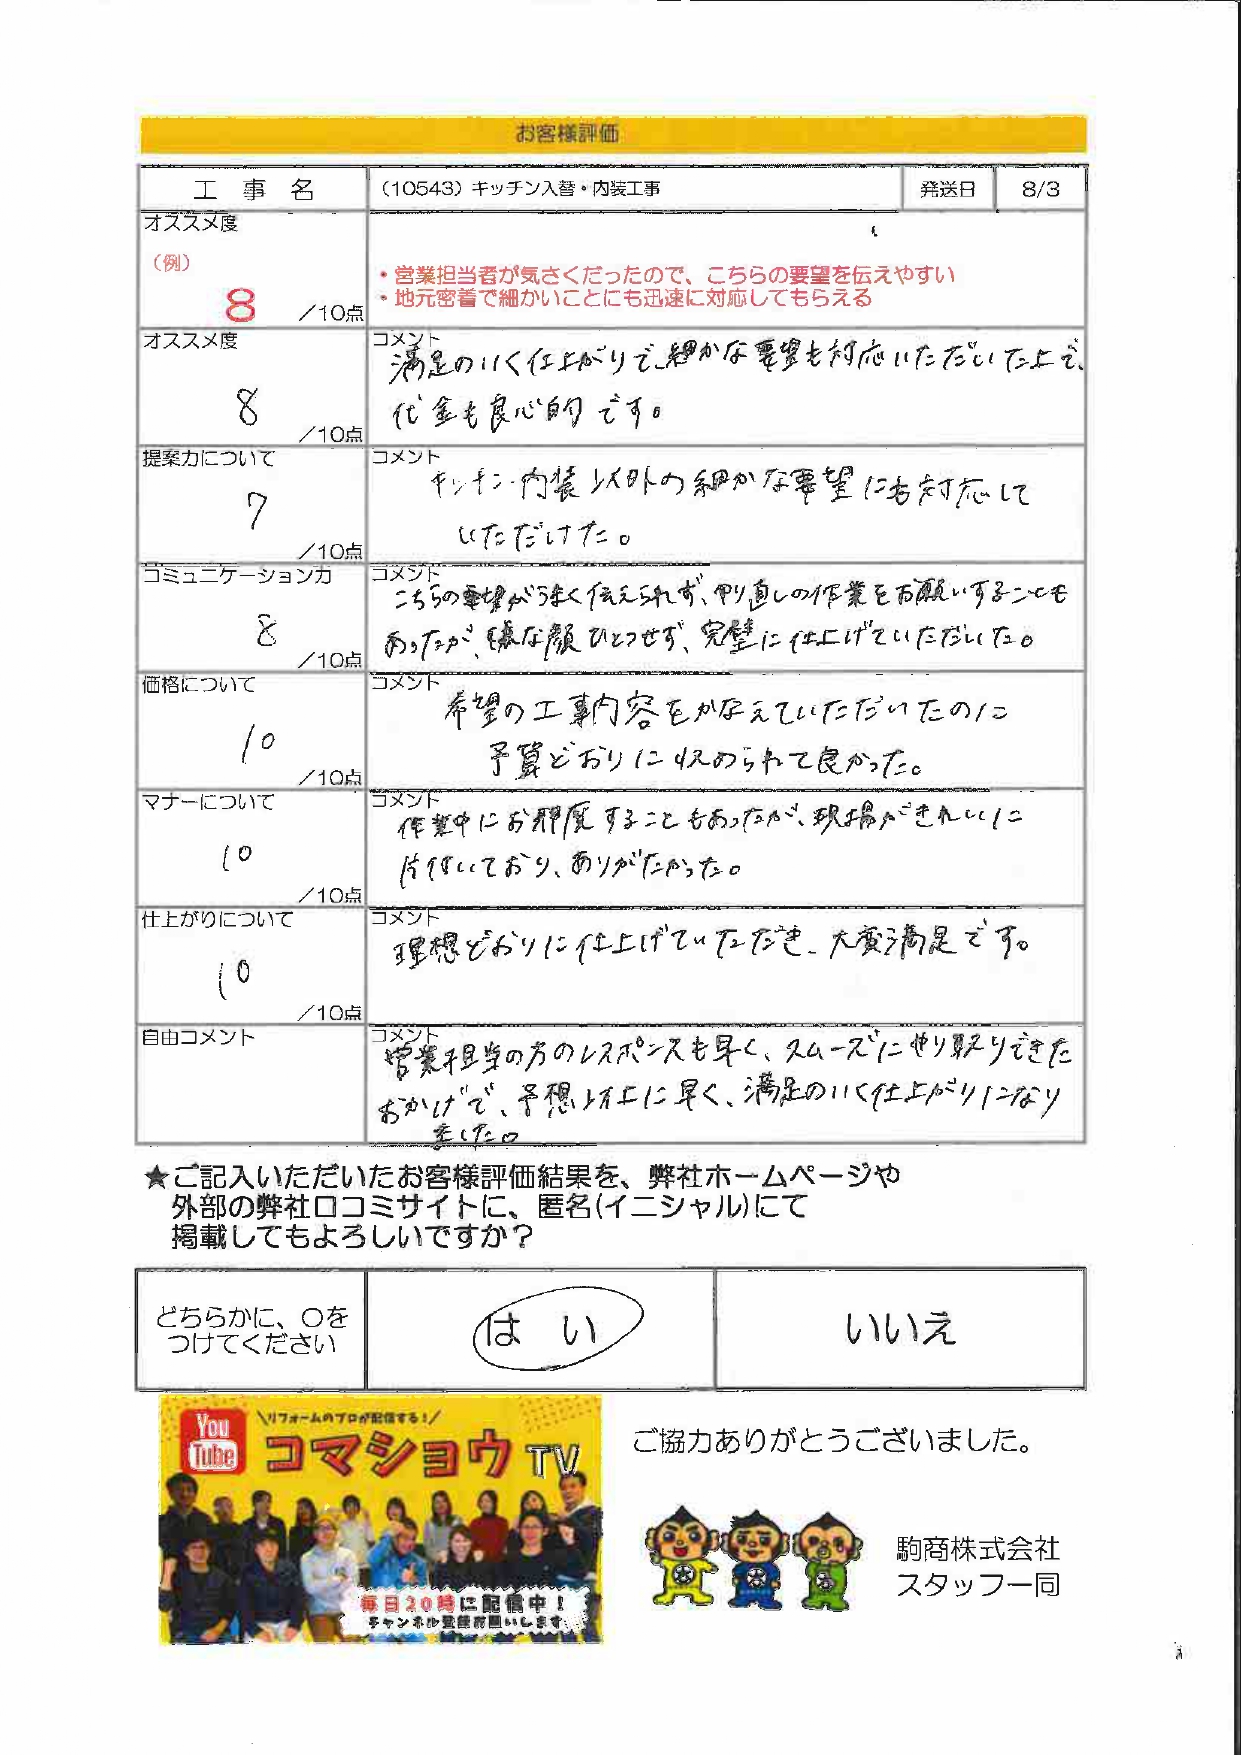 お客様評価
工事名 (10543) キッチン入替・内装工事 発送日 8/3
オススメ度
(例)
8 /10点
・営業担当者が気さくだったので、こちらの要望を伝えやすい
・地元密着で細かいことにも迅速に対応してもらえる
オススメ度
8 /10点
コメント
満足のいく仕上がりで、細かな要望も対応いただいた上で、
代金も良心的です。
提案力について
7 /10点
コメント
キッチン・内装以外の細かな要望にも対応して
いただけた。
コミュニケーション力
8 /10点
コメント
こちらの要望がうまく伝えられず、やり直しの作業をお願いすることも
あったが、嫌な顔ひとつせず、完璧に仕上げていただいた。
価格について
10 /10点
コメント
希望の工事内容をかなえていただいたのに
予算どおりに収められて良かった。
マナーについて
10 /10点
コメント
作業中にお邪魔することもあったが、現場がきれいに
片付いており、ありがたかった。
仕上がりについて
10 /10点
コメント
理想どおりに仕上げていただき、大変満足です。
自由コメント
コメント
営業担当の方のレスポンスも早く、スムーズにやり取りできた
おかげで、予想以上に早く、満足のいく仕上がりになり
ました。
★ご記入いただいたお客様評価結果を、弊社ホームページや
外部の弊社口コミサイトに、匿名(イニシャル)にて
掲載してもよろしいですか?
どちらかに、○を
つけてください
はい いいえ
You
Tube
\リフォームのプロが配信する!/
コマショウTV
毎日20時に配信中!
チャンネル登録お願いします
ご協力ありがとうございました。
駒商株式会社
スタッフ一同